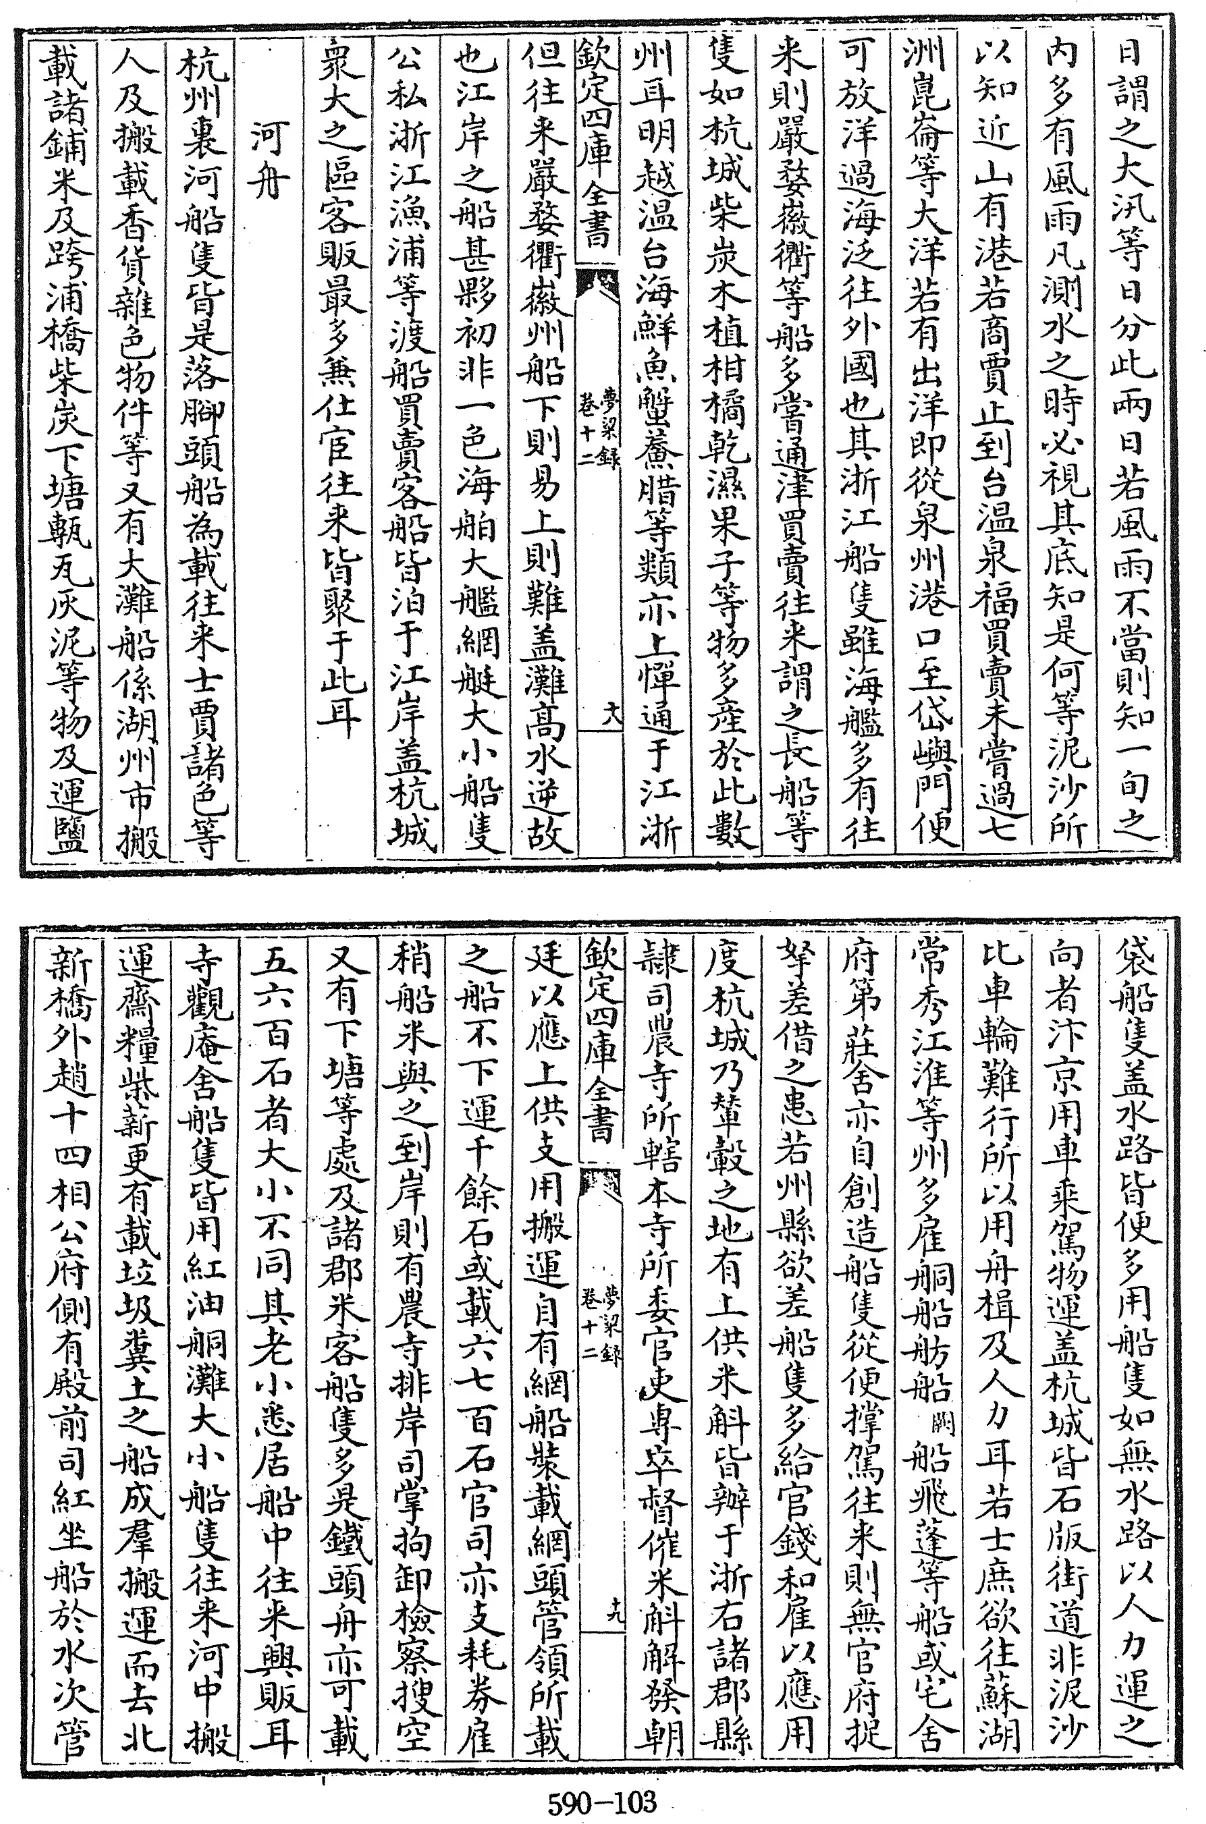 日謂之大汛等日分此兩日若風雨不當則知一旬之
内多有風雨凡測水之時必視其底知是何等泥沙所
以知近山有港若商賈止到台温泉福買賣未嘗過七
洲崑崙等大洋若有出洋即從泉州港口至岱嶼門便
可放洋過海泛往外國也其浙江船隻雖海艦多有往
来則嚴婺徽衢等船多嘗通津買賣往来謂之長船等
隻如杭城柴炭木植柑橘乾濕果子等物多産於此數
州耳明越温台海鮮魚蟹鯗腊等類亦上䋎通于江浙
欽定四庫全書
夢粱録
卷十二
十八
但往来嚴婺衢徽州船下則易上則難盖灘髙水逆故
也江岸之船甚夥初非一色海舶大艦網艇大小船隻
公私浙江漁浦等渡船買賣客船皆泊于江岸盖杭城
衆大之區客販最多兼仕宦往来皆聚于此耳
河舟
杭州裏河船隻皆是落腳頭船為載往来士賈諸色等
人及搬載香貨雜色物件等又有大灘船係湖州市搬
載諸鋪米及跨浦橋柴炭下塘甎瓦灰泥等物及運鹽
袋船隻盖水路皆便多用船隻如無水路以人力運之
向者汴京用車乘駕物運盖杭城皆石版街道非泥沙
比車輪難行所以用舟楫及人力耳若士庶欲往蘇湖
常秀江淮等州多雇舸船舫船闕船飛蓬等船或宅舍
府第莊舍亦自創造船隻從便撑駕往来則無官府捉
拏差借之患若州縣欲差船隻多給官錢和雇以應用
度杭城乃輦轂之地有上供米斛皆辦于浙右諸郡縣
隸司農寺所轄本寺所委官吏專卒督催米斛解發朝
欽定四庫全書
夢粱録
卷十二
十九
廷以應上供支用搬運自有綱船裝載綱頭管領所載
之船不下運千餘石或載六七百石官司亦支耗券雇
稍船米與之到岸則有農寺排岸司掌拘卸檢察搜空
又有下塘等處及諸郡米客船隻多是鐵頭舟亦可載
五六百石者大小不同其老小悉居船中往来興販耳
寺觀庵舍船隻皆用紅油舸灘大小船隻往来河中搬
運齋糧柴薪更有載垃圾糞土之船成羣搬運而去北
新橋外趙十四相公府側有殿前司紅坐船於水次管
590-103